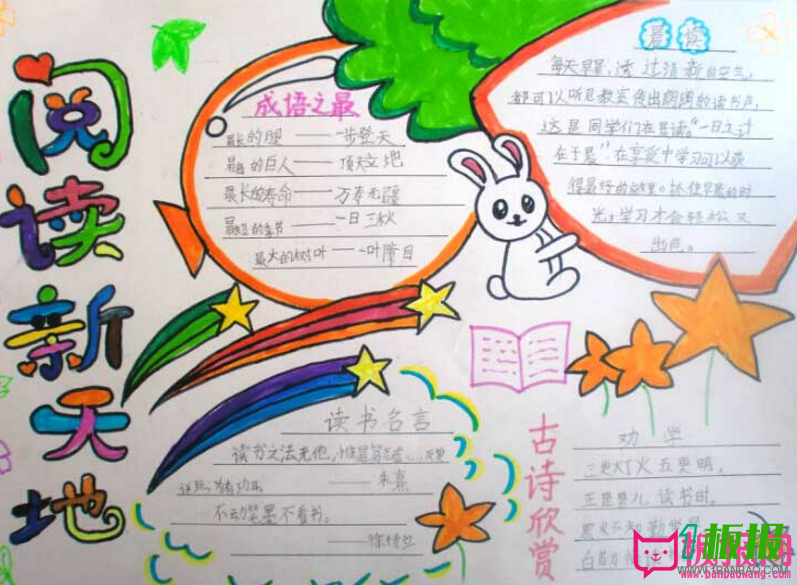 阅读新天地
成语之最
最长的腿——一步登天
最高的巨人——顶天立地
最长的寿命——万寿无疆
最短的季节——一日三秋
最大的树叶——一叶障目
晨读
每天早晨，
过清新的空气，
都可以听见教室传出朗朗的读书声，
这是同学们在晨读。"一日之计
在于晨"，在享受中学习可以获
得最好的效益。抓住早晨的时
光，学习才会轻松又
出色。
读书名言
读书之法无他，惟是笃志虚心，反复
——朱熹
不动笔墨不看书。
——徐特立
古诗欣赏
劝学
三更灯火五更明，
正是男儿读书时。
白首方
板报网
www.banbaowang.com